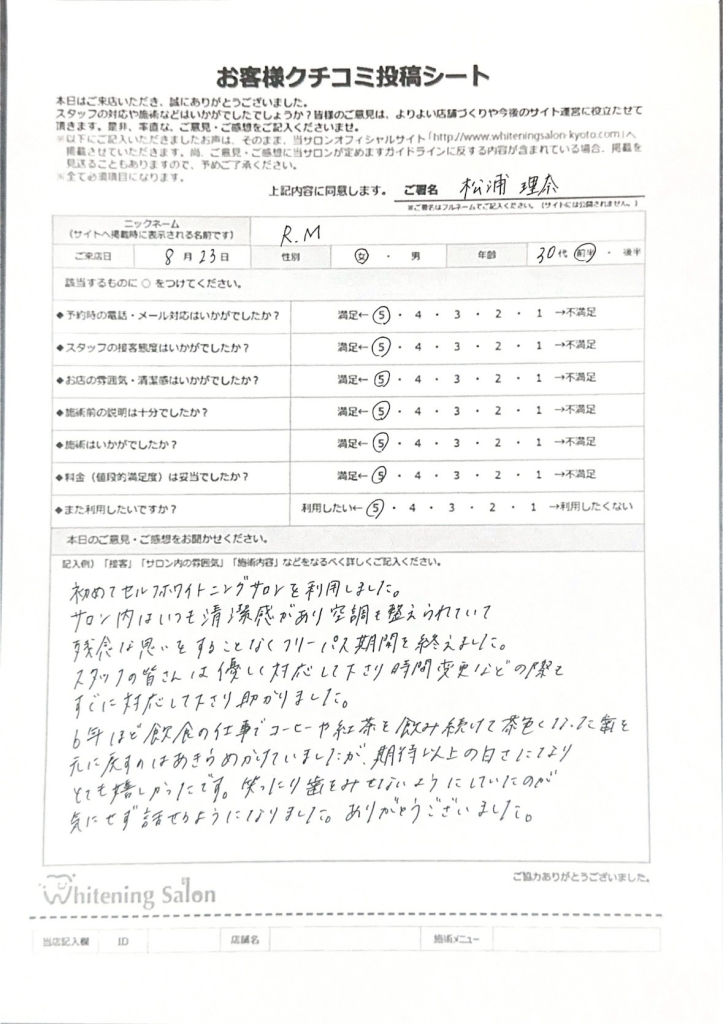 お客様クチコミ投稿シート
本日はご来店いただき、誠にありがとうございました。
スタッフの対応や施術などはいかがでしたでしょうか?皆様のご意見は、よりよい店舗づくりや今後のサイト運営に役立たせて
頂きます。是非、率直な、ご意見・ご感想をご記入くださいませ。
※以下にご記入いただきましたお声は、そのまま、当サロンオフィシャルサイト「http://www.whiteningsalon-kyoto.com」へ
掲載させていただきます。尚、ご意見・ご感想に当サロンが定めますガイドラインに反する内容が含まれている場合、掲載を
見送ることもありますので、予めご了承ください。
※全て必須項目になります。
上記内容に同意します。 ご署名 松浦 理奈
※ご署名はフルネームでご記入ください。(サイトには公開されません。)
ニックネーム
(サイトへ掲載時に表示される名前です) R.M
ご来店日 8月23日 性別 女・男 年齢 30代 前半・後半
該当するものに○をつけてください。
◆予約時の電話・メール対応はいかがでしたか? 満足← 5・4・3・2・1 →不満足
◆スタッフの接客態度はいかがでしたか? 満足← 5・4・3・2・1 →不満足
◆お店の雰囲気・清潔感はいかがでしたか? 満足← 5・4・3・2・1 →不満足
◆施術前の説明は十分でしたか? 満足← 5・4・3・2・1 →不満足
◆施術はいかがでしたか? 満足← 5・4・3・2・1 →不満足
◆料金(値段的満足度)は妥当でしたか? 満足← 5・4・3・2・1 →不満足
◆また利用したいですか? 利用したい← 5・4・3・2・1 →利用したくない
本日のご意見・ご感想をお聞かせください。
記入例)「接客」「サロン内の雰囲気」「施術内容」などをなるべく詳しくご記入ください。
初めてセルフホワイトニングサロンを利用しました。
サロン内はいつも清潔感があり空調も整えられていて
残念な思いをすることなくフリーパス期間を終えました。
スタッフの皆さんは優しく対応して下さり時間変更などの際も
すぐに対応して下さり助かりました。
6年ほど飲食の仕事でコーヒーや紅茶を飲み続けて茶色くなった歯を
元に戻すのはあきらめかけていましたが、期待以上の白さになり
とても嬉しかったです。笑ったり歯をみせないようにしていたのが
気にせず話せるようになりました。ありがとうございました。
Whitening Salon
ご協力ありがとうございました。
当店記入欄 ID 店舗名 施術メニュー